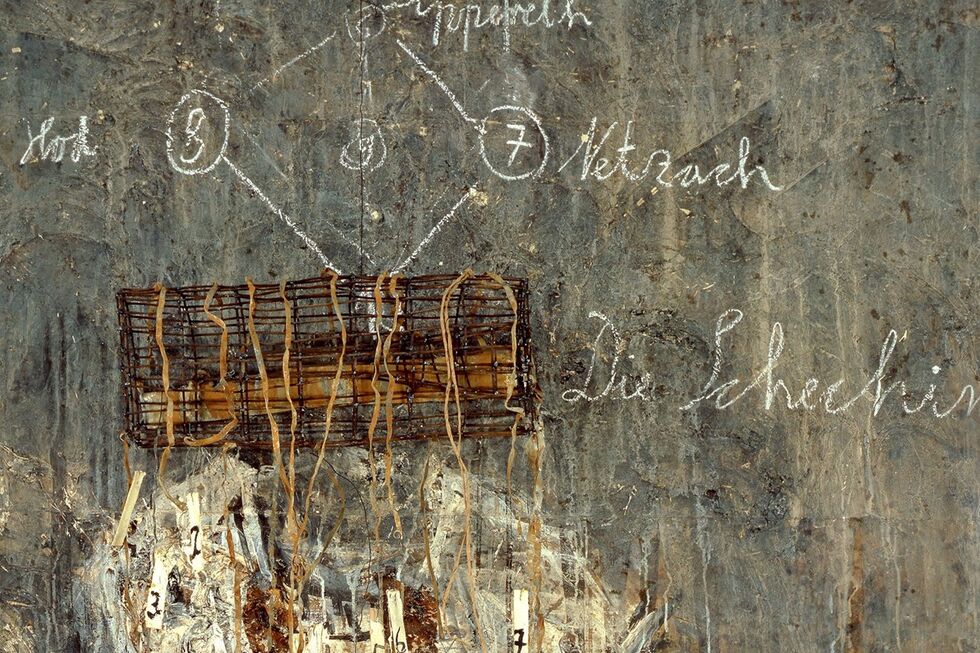 6 ippereth
Hod 8 9 7 Netzach
Die Schechin
1
3 6 7